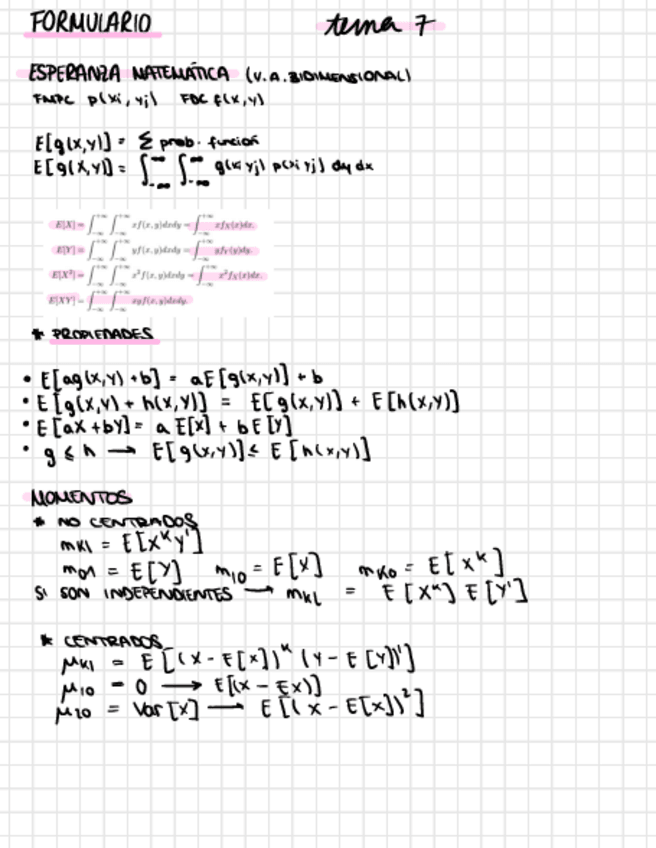 FORMULARIO tema 7
ESPERANZA MATEMÁTICA (V.A. BIDIMENSIONAL)
FMPC p(xi, yj) FDC f(x,y)
E[g(x,y)] = Σ prob. función
E[g(x,y)] = ∫_{-∞}^{∞} ∫_{-∞}^{∞} g(xi yj) p(xi yj) dy dx
E[X] = ∫_{-∞}^{+∞} ∫_{-∞}^{+∞} xf(x,y)dxdy = ∫_{-∞}^{+∞} xf_X(x)dx.
E[Y] = ∫_{-∞}^{+∞} ∫_{-∞}^{+∞} yf(x,y)dxdy = ∫_{-∞}^{+∞} yf_Y(y)dy.
E[X²] = ∫_{-∞}^{+∞} ∫_{-∞}^{+∞} x²f(x,y)dxdy = ∫_{-∞}^{+∞} x²f_X(x)dx.
E[XY] = ∫_{-∞}^{+∞} ∫_{-∞}^{+∞} xyf(x,y)dxdy.
* PROPIEDADES
• E[ag(x,y) + b] = aE[g(x,y)] + b
• E[g(x,y) + h(x,y)] = E[g(x,y)] + E[h(x,y)]
• E[aX + bY] = a E[x] + b E[y]
• g ≤ h → E[g(x,y)] ≤ E[h(x,y)]
MOMENTOS
* NO CENTRADOS
m_{kl} = E[X^k Y^l]
m_{01} = E[Y] m_{10} = E[X] m_{k0} = E[X^k]
SI SON INDEPENDIENTES → m_{kl} = E[X^k] E[Y^l]
* CENTRADOS
μ_{kl} = E[(X - E[x])^k (Y - E[Y])^l]
μ_{10} = 0 → E[(x - Ex)]
μ_{20} = Var[x] → E[(x - E[x])²]